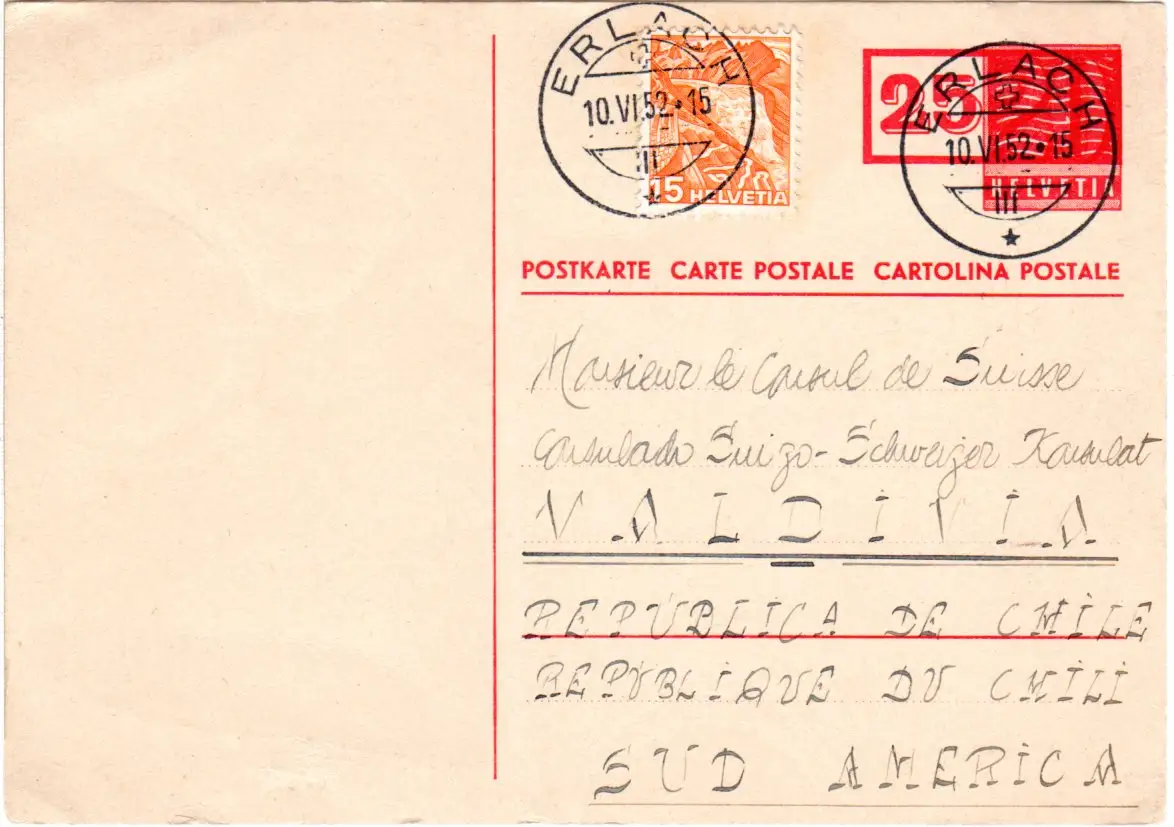 ERLACH
10.VI.52•15
III
15 HELVETIA
25
ERLACH
10.VI.52•15
III
HELVETIA
POSTKARTE CARTE POSTALE CARTOLINA POSTALE
Monsieur le Consul de Suisse
Consulado Suizo - Schweizer Konsulat
VALDIVIA
REPÚBLICA DE CHILE
REPUBLIQUE DU CHILI
SUD AMERICA